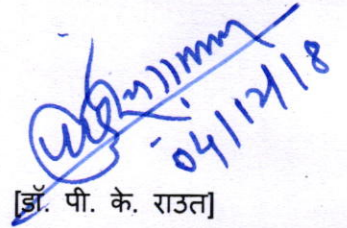 04/12/18
[डॉ. पी. के. राउत]